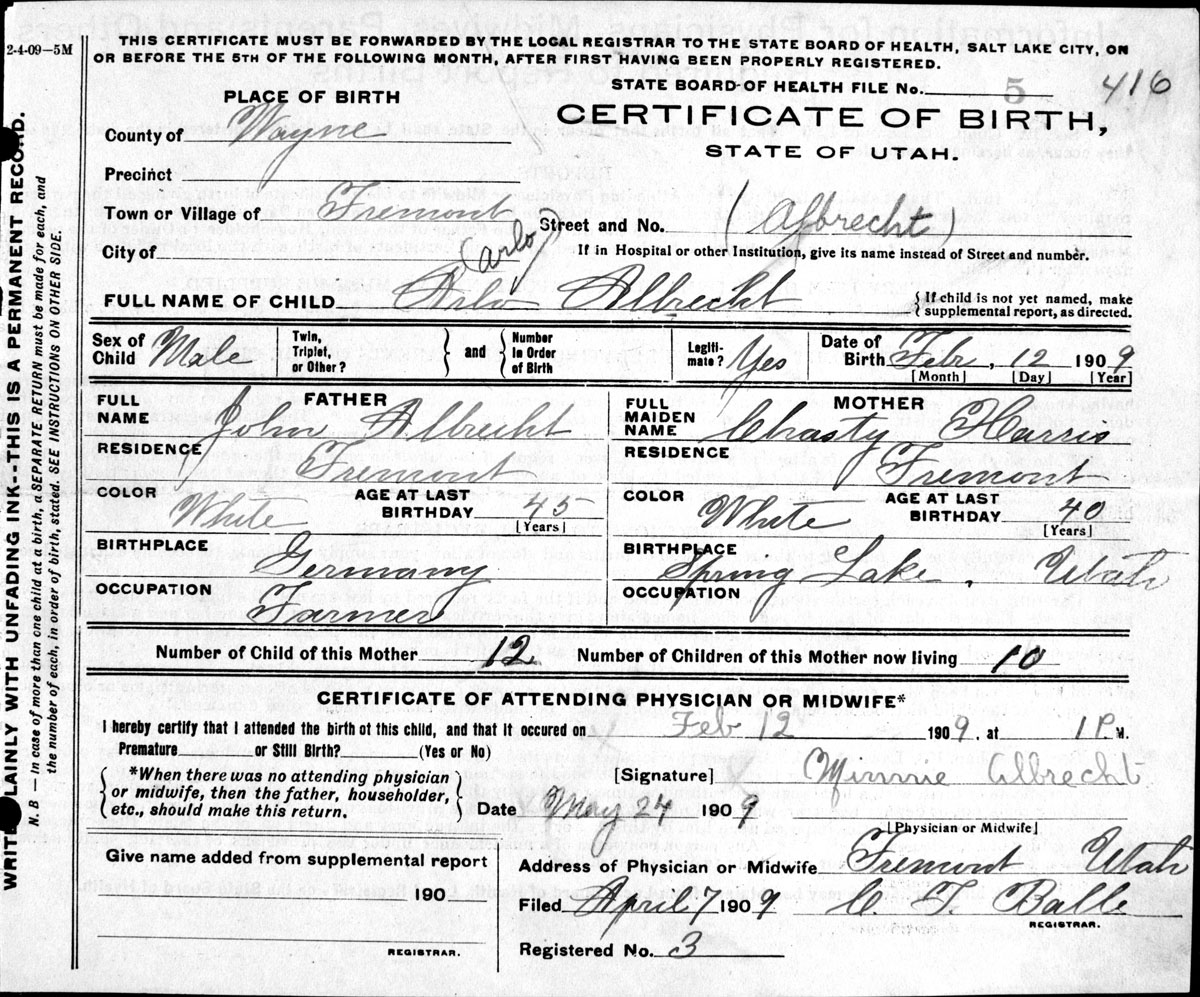 2-4-09—5M
THIS CERTIFICATE MUST BE FORWARDED BY THE LOCAL REGISTRAR TO THE STATE BOARD OF HEALTH, SALT LAKE CITY, ON
OR BEFORE THE 5TH OF THE FOLLOWING MONTH, AFTER FIRST HAVING BEEN PROPERLY REGISTERED.
STATE BOARD OF HEALTH FILE No. 5 416
PLACE OF BIRTH
CERTIFICATE OF BIRTH,
STATE OF UTAH.
County of Wayne
Precinct
Town or Village of Fremont Street and No. (Albrecht)
City of (Arlo) If in Hospital or other Institution, give its name instead of Street and number.
FULL NAME OF CHILD Arlo Albrecht { If child is not yet named, make supplemental report, as directed.
Sex of Child Male Twin, Triplet, or Other? } and { Number in Order of Birth Legiti-mate? Yes Date of Birth Febr, 12 1909
[Month] [Day] [Year]
FATHER MOTHER
FULL NAME John Albrecht FULL MAIDEN NAME Chasty Harris
RESIDENCE Fremont RESIDENCE Fremont
COLOR White AGE AT LAST BIRTHDAY 45 [Years] COLOR White AGE AT LAST BIRTHDAY 40 [Years]
BIRTHPLACE Germany BIRTHPLACE Spring Lake, Utah
OCCUPATION Farmer OCCUPATION
Number of Child of this Mother 12 Number of Children of this Mother now living 10
CERTIFICATE OF ATTENDING PHYSICIAN OR MIDWIFE*
I hereby certify that I attended the birth of this child, and that it occured on Feb 12 1909, at 1 P. M.
Premature or Still Birth? (Yes or No)
{ *When there was no attending physician or midwife, then the father, householder, etc., should make this return. }
[Signature] Minnie Albrecht
Date May 24 1909
[Physician or Midwife]
Give name added from supplemental report
190
REGISTRAR.
Address of Physician or Midwife Fremont Utah
Filed April 7 1909 C. F. Balle
REGISTRAR.
Registered No. 3
WRITE LAINLY WITH UNFADING INK--THIS IS A PERMANENT RECORD.
N. B — In case of more than one child at a birth, a SEPARATE RETURN must be made for each, and
the number of each, in order of birth, stated. SEE INSTRUCTIONS ON OTHER SIDE.